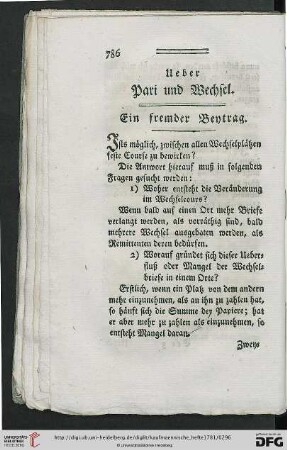 786
Ueber
Pari und Wechsel.
Ein fremder Beytrag.
Ists möglich, zwischen allen Wechselplätzen
feste Course zu bewirken?
Die Antwort hierauf muß in folgenden
Fragen gesucht werden:
1) Woher entsteht die Veränderung
im Wechselcours?
Wenn bald auf einen Ort mehr Briefe
verlangt werden, als vorräthig sind, bald
mehrere Wechsel ausgeboten werden, als
Remittenten deren bedürfen.
2) Worauf gründet sich dieser Ueber-
fluß oder Mangel der Wechsel-
briefe in einem Orte?
Erstlich, wenn ein Platz von dem andern
mehr einzunehmen, als an ihn zu zahlen hat,
so häuft sich die Summe des Papiers; hat
er aber mehr zu zahlen als einzunehmen, so
entsteht Mangel daran.
Zweys
UNIVERSITÄTS-
BIBLIOTHEK
HEIDELBERG
http://digi.ub.uni-heidelberg.de/diglit/kaufmaennische_hefte1781/0296
© Universitätsbibliothek Heidelberg
gefördert durch die
DFG